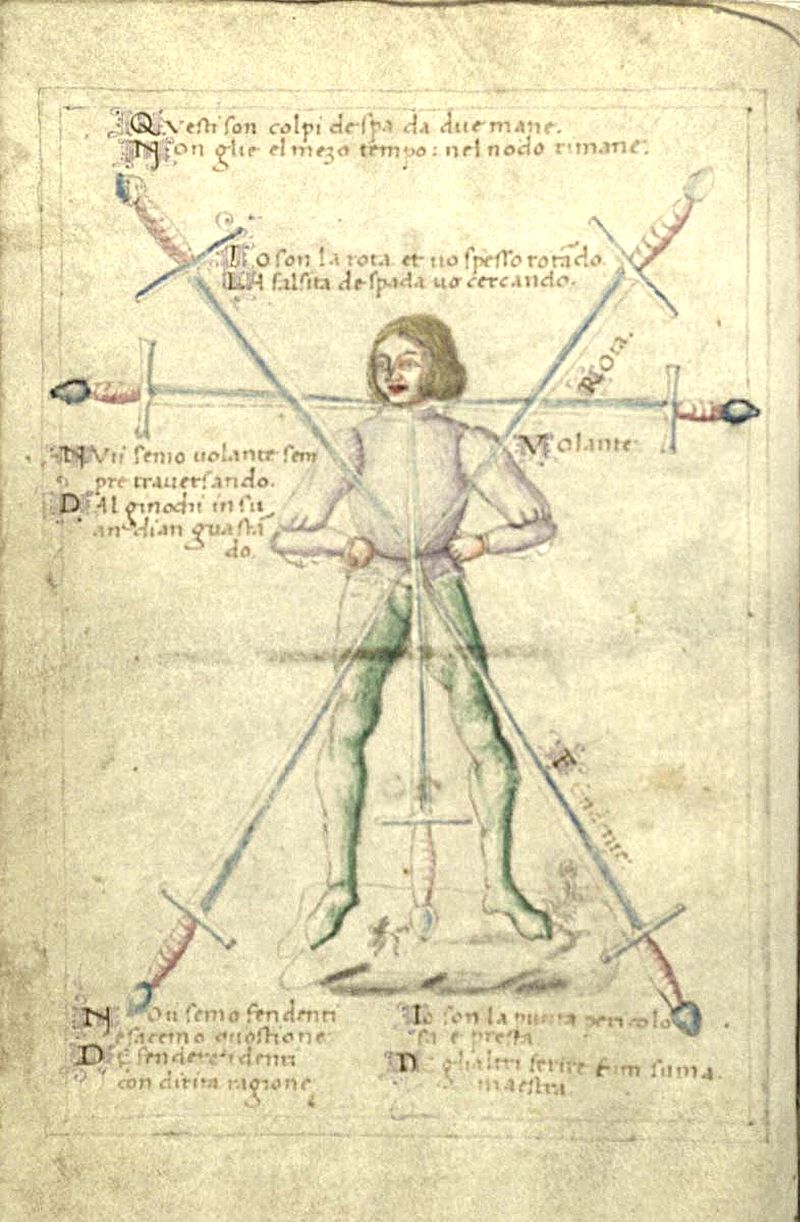 Questi son colpi de spa da due mane.
Non glie el mezo tempo: nel nodo rimane.
Io son la rota et uo spesso rotādo.
LA falsita de spada uo cercando.
Rota.
NVii semo uolante sem
pre trauersando.
DAl ginochi in su
Volante
guastā
do.
Fendente.
Noii semo fendenti
e facemo questione
De fender
denti
con dirita ragione
Io son la punta pericolo
sa e presta
De glialtri ferire
suma
maestra